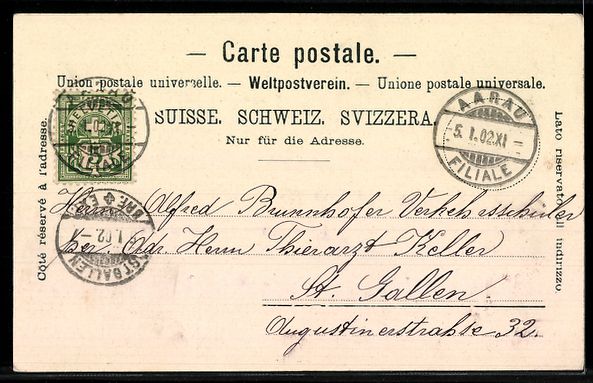 — Carte postale. —
Union postale universelle. — Weltpostverein. — Unione postale universale.
SUISSE. SCHWEIZ. SVIZZERA.
Nur für die Adresse.
AARAU
5. I. 02. XI
FILIALE
HELVETIA
Côté réservé à l'adresse.
Lato riservato all' indirizzo.
Herrn Alfred Brunnhofer Verkehrsschüler
bei Herrn Thierarzt Keller
St. Gallen.
Augustinerstrahse 32.
ST. GALLEN
I. 02